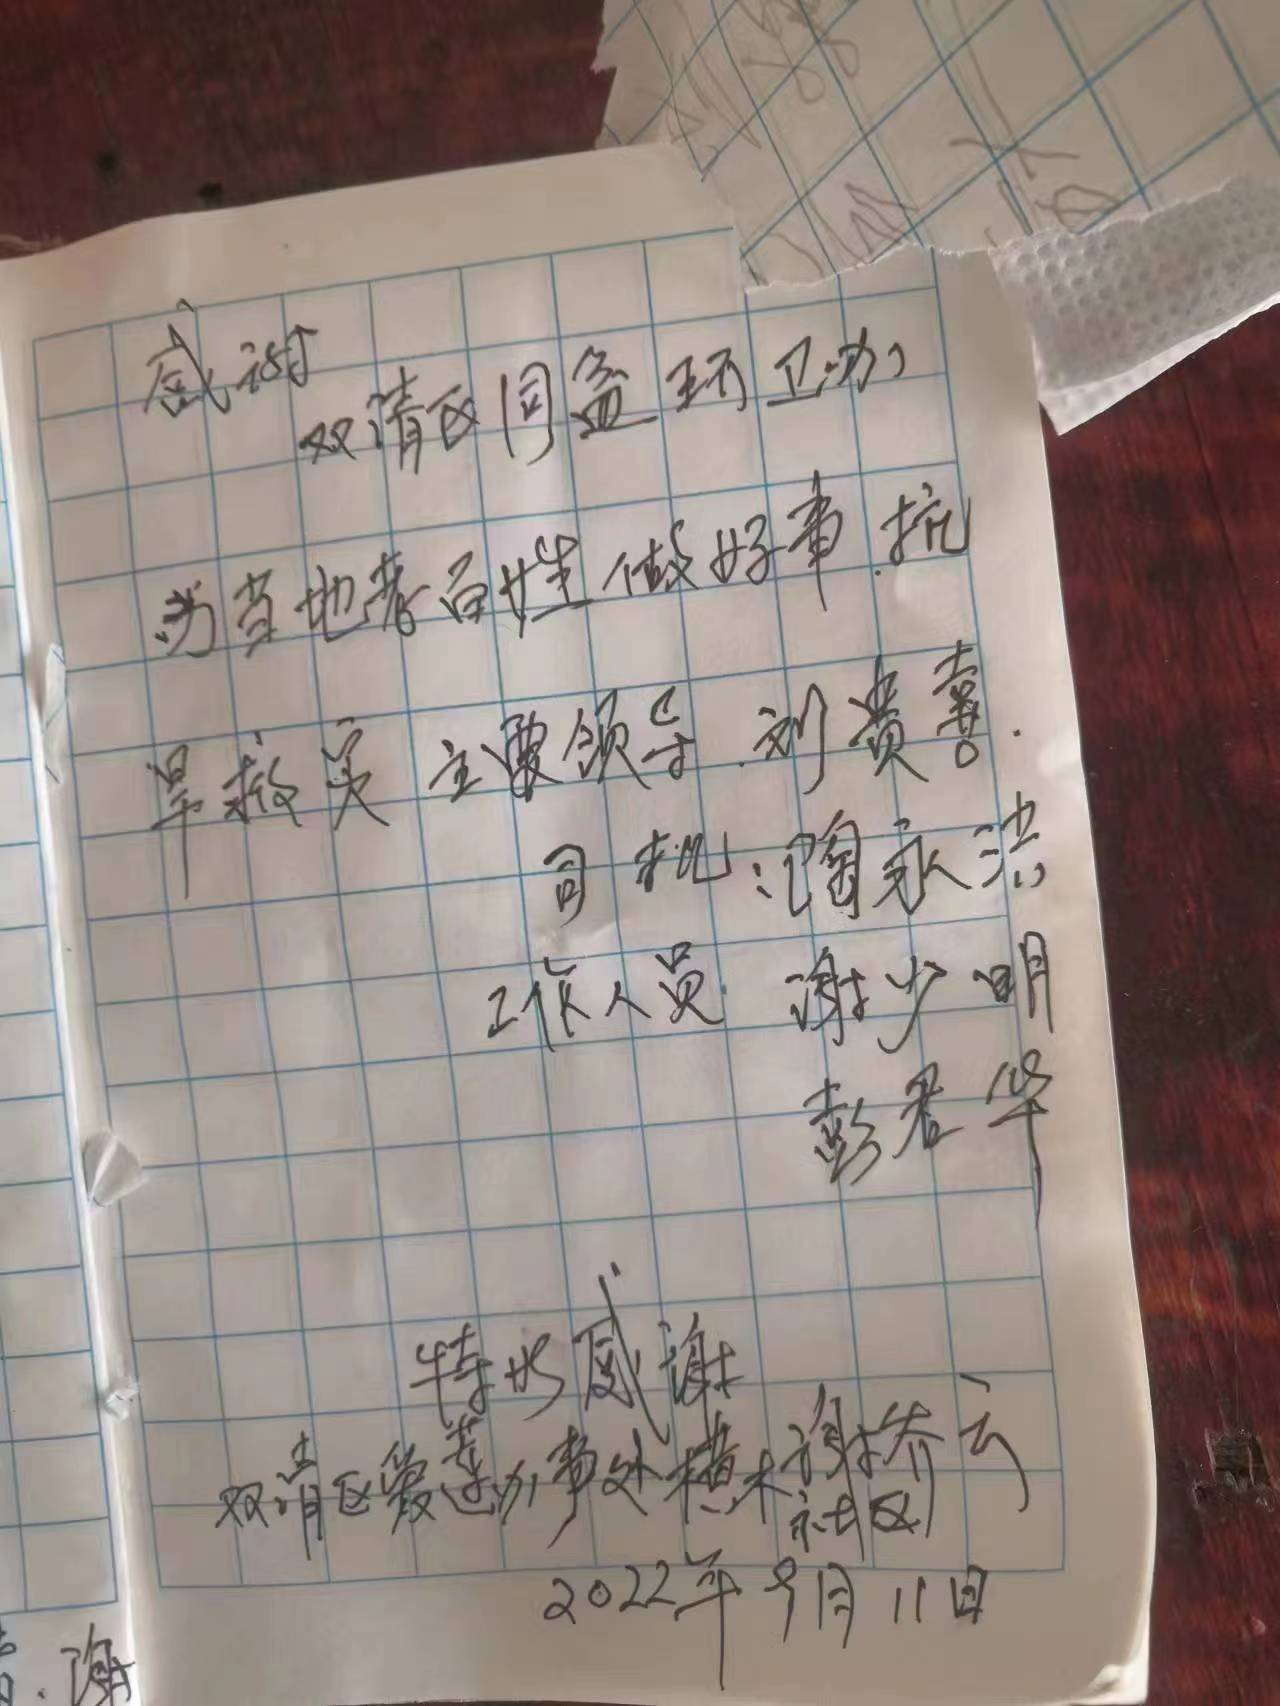 感谢
双清区同益环卫办
为当地老百姓做好事.抗
旱救灾 主要领导.刘贵喜.
司机:陶永洁
工作人员. 谢少明
彭君华
特此感谢
双清区爱莲办事处横木社区
谢桥云
2022年9月11日
谢